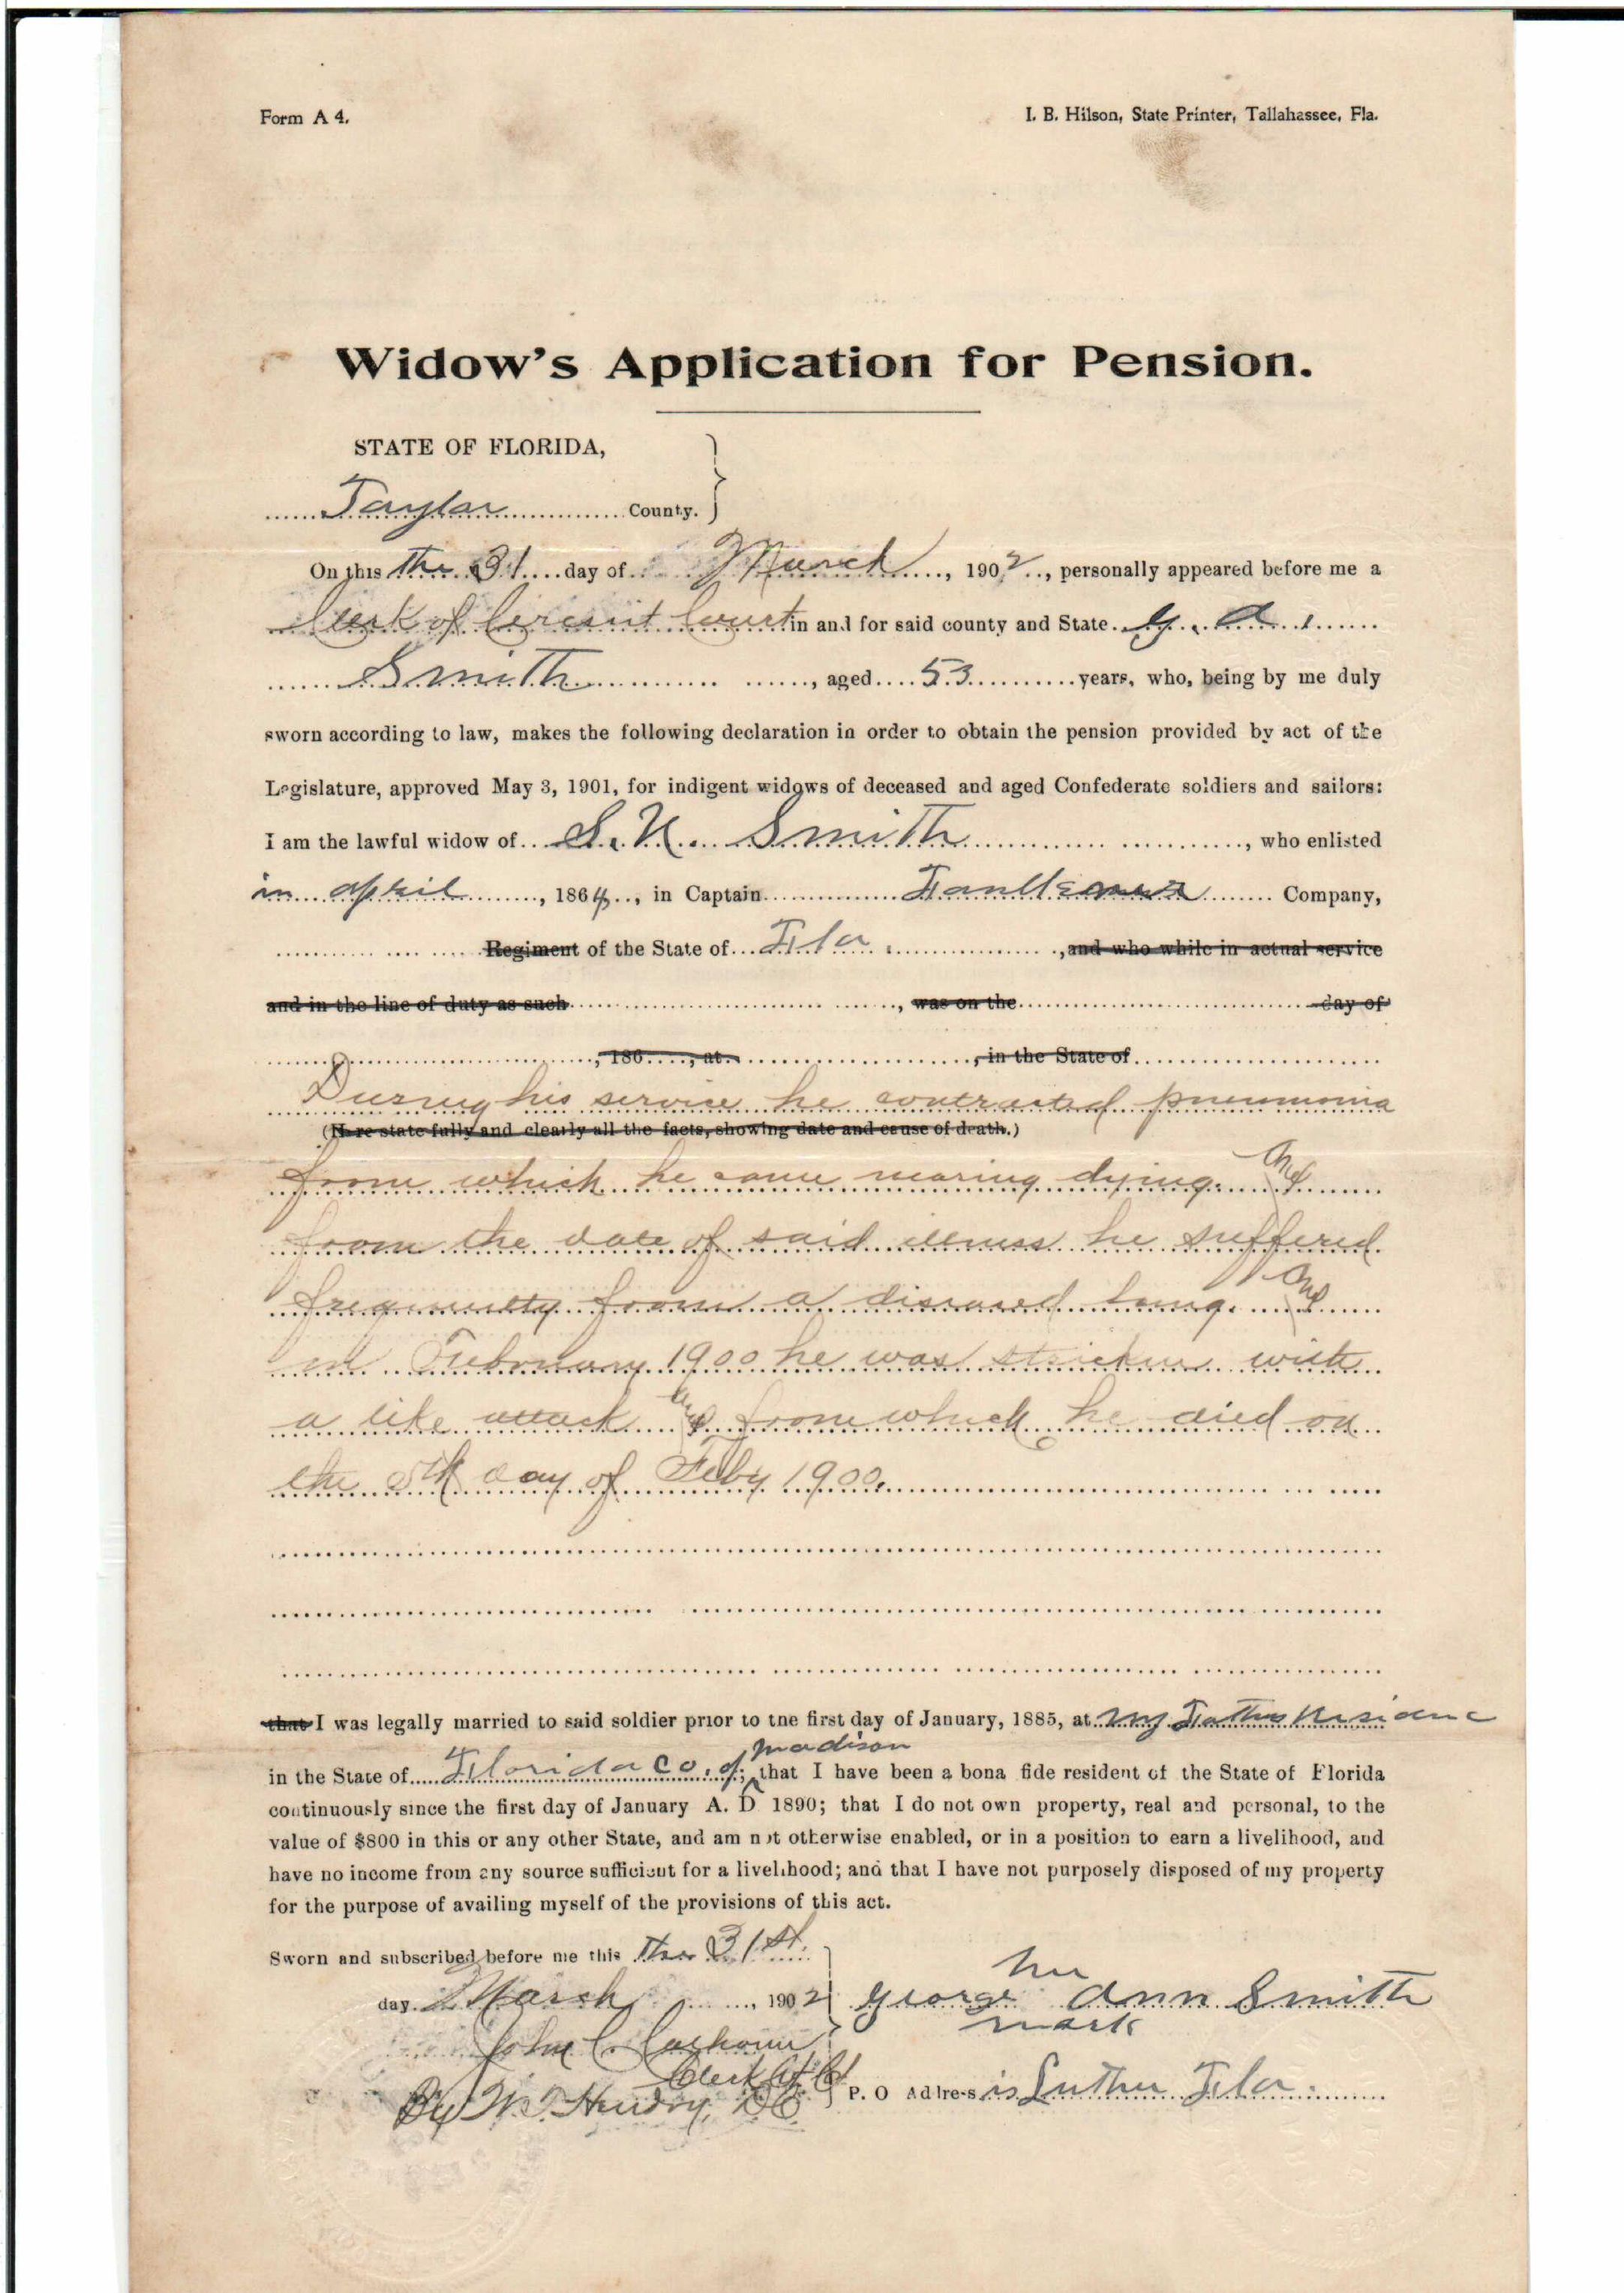 Form A 4.
I. B. Hilson, State Printer, Tallahassee, Fla.
Widow's Application for Pension.
STATE OF FLORIDA,
Taylor County.
On this the 31 day of March, 1902, personally appeared before me a
Clerk of Circuit Court in and for said county and State G. A.
Smith, aged 53 years, who, being by me duly
sworn according to law, makes the following declaration in order to obtain the pension provided by act of the
Legislature, approved May 3, 1901, for indigent widows of deceased and aged Confederate soldiers and sailors:
I am the lawful widow of S. N. Smith, who enlisted
in april, 1864, in Captain Company,
Regiment of the State of Fla., and who while in actual service
and in the line of duty as such, was on the day of
, 186, at, in the State of
During his service he contracted pneumonia
(Here state fully and clearly all the facts, showing date and cause of death.)
from which he came nearing dying. And
from the date of said illness he suffered
frequently from a diseased lung. And
in February 1900 he was stricken with
a like attack and from which he died on
the 5th day of Feby 1900.
that I was legally married to said soldier prior to the first day of January, 1885, at my Fathers Residenc
in the State of Florida Co. of Madison; that I have been a bona fide resident of the State of Florida
continuously since the first day of January A. D 1890; that I do not own property, real and personal, to the
value of $800 in this or any other State, and am not otherwise enabled, or in a position to earn a livelihood, and
have no income from any source sufficient for a livelihood; and that I have not purposely disposed of my property
for the purpose of availing myself of the provisions of this act.
Sworn and subscribed before me this the 31st.
day March, 1902
her
George Ann Smith
mark
John C. Calhoun
Clerk Ct Ct
By W. T. Hendry, DC
P. O Address is Luther Fla.